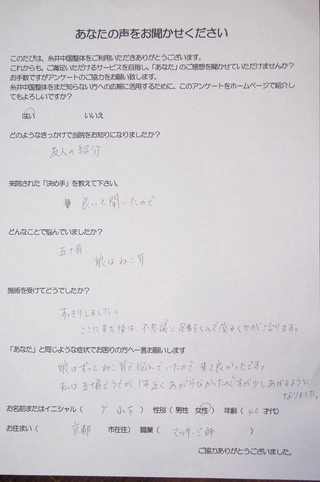 あなたの声をお聞かせください
このたびは、糸井中国整体をご利用いただきありがとうございます。
これからも、ご満足いただけるサービスを目指し、「あなた」のご感想を聞かせていただけませんか？
お手数ですがアンケートのご協力をお願い致します。
糸井中国整体をまだ知らない方への広報に活用するために、このアンケートをホームページで紹介し
てもよろしいですか？
はい いいえ
どのようなきっかけで当院をお知りになりましたか？
友人の紹介
来院された「決め手」を教えて下さい。
良いと聞いたので
どんなことで悩んでいましたか？
五十肩
娘はねこ背
施術を受けてどうでしたか？
すっきりしました。
ここに来た後は、不思議と足をくんで座るくせがこおります。
「あなた」と同じような症状でお困りの方へ一言お願いします
娘はずっとねこ背で悩んでいたので来て良かったです。
私は五十肩で1年近くあがらなかったのですが少しあがるように
なりました。
お名前またはイニシャル（ Y 山下 ） 性別（ 男性 女性 ） 年齢（ 40 才代）
お住まい（ 京都 市在住） 職業（ マッサージ師 ）
ご協力ありがとうございました。